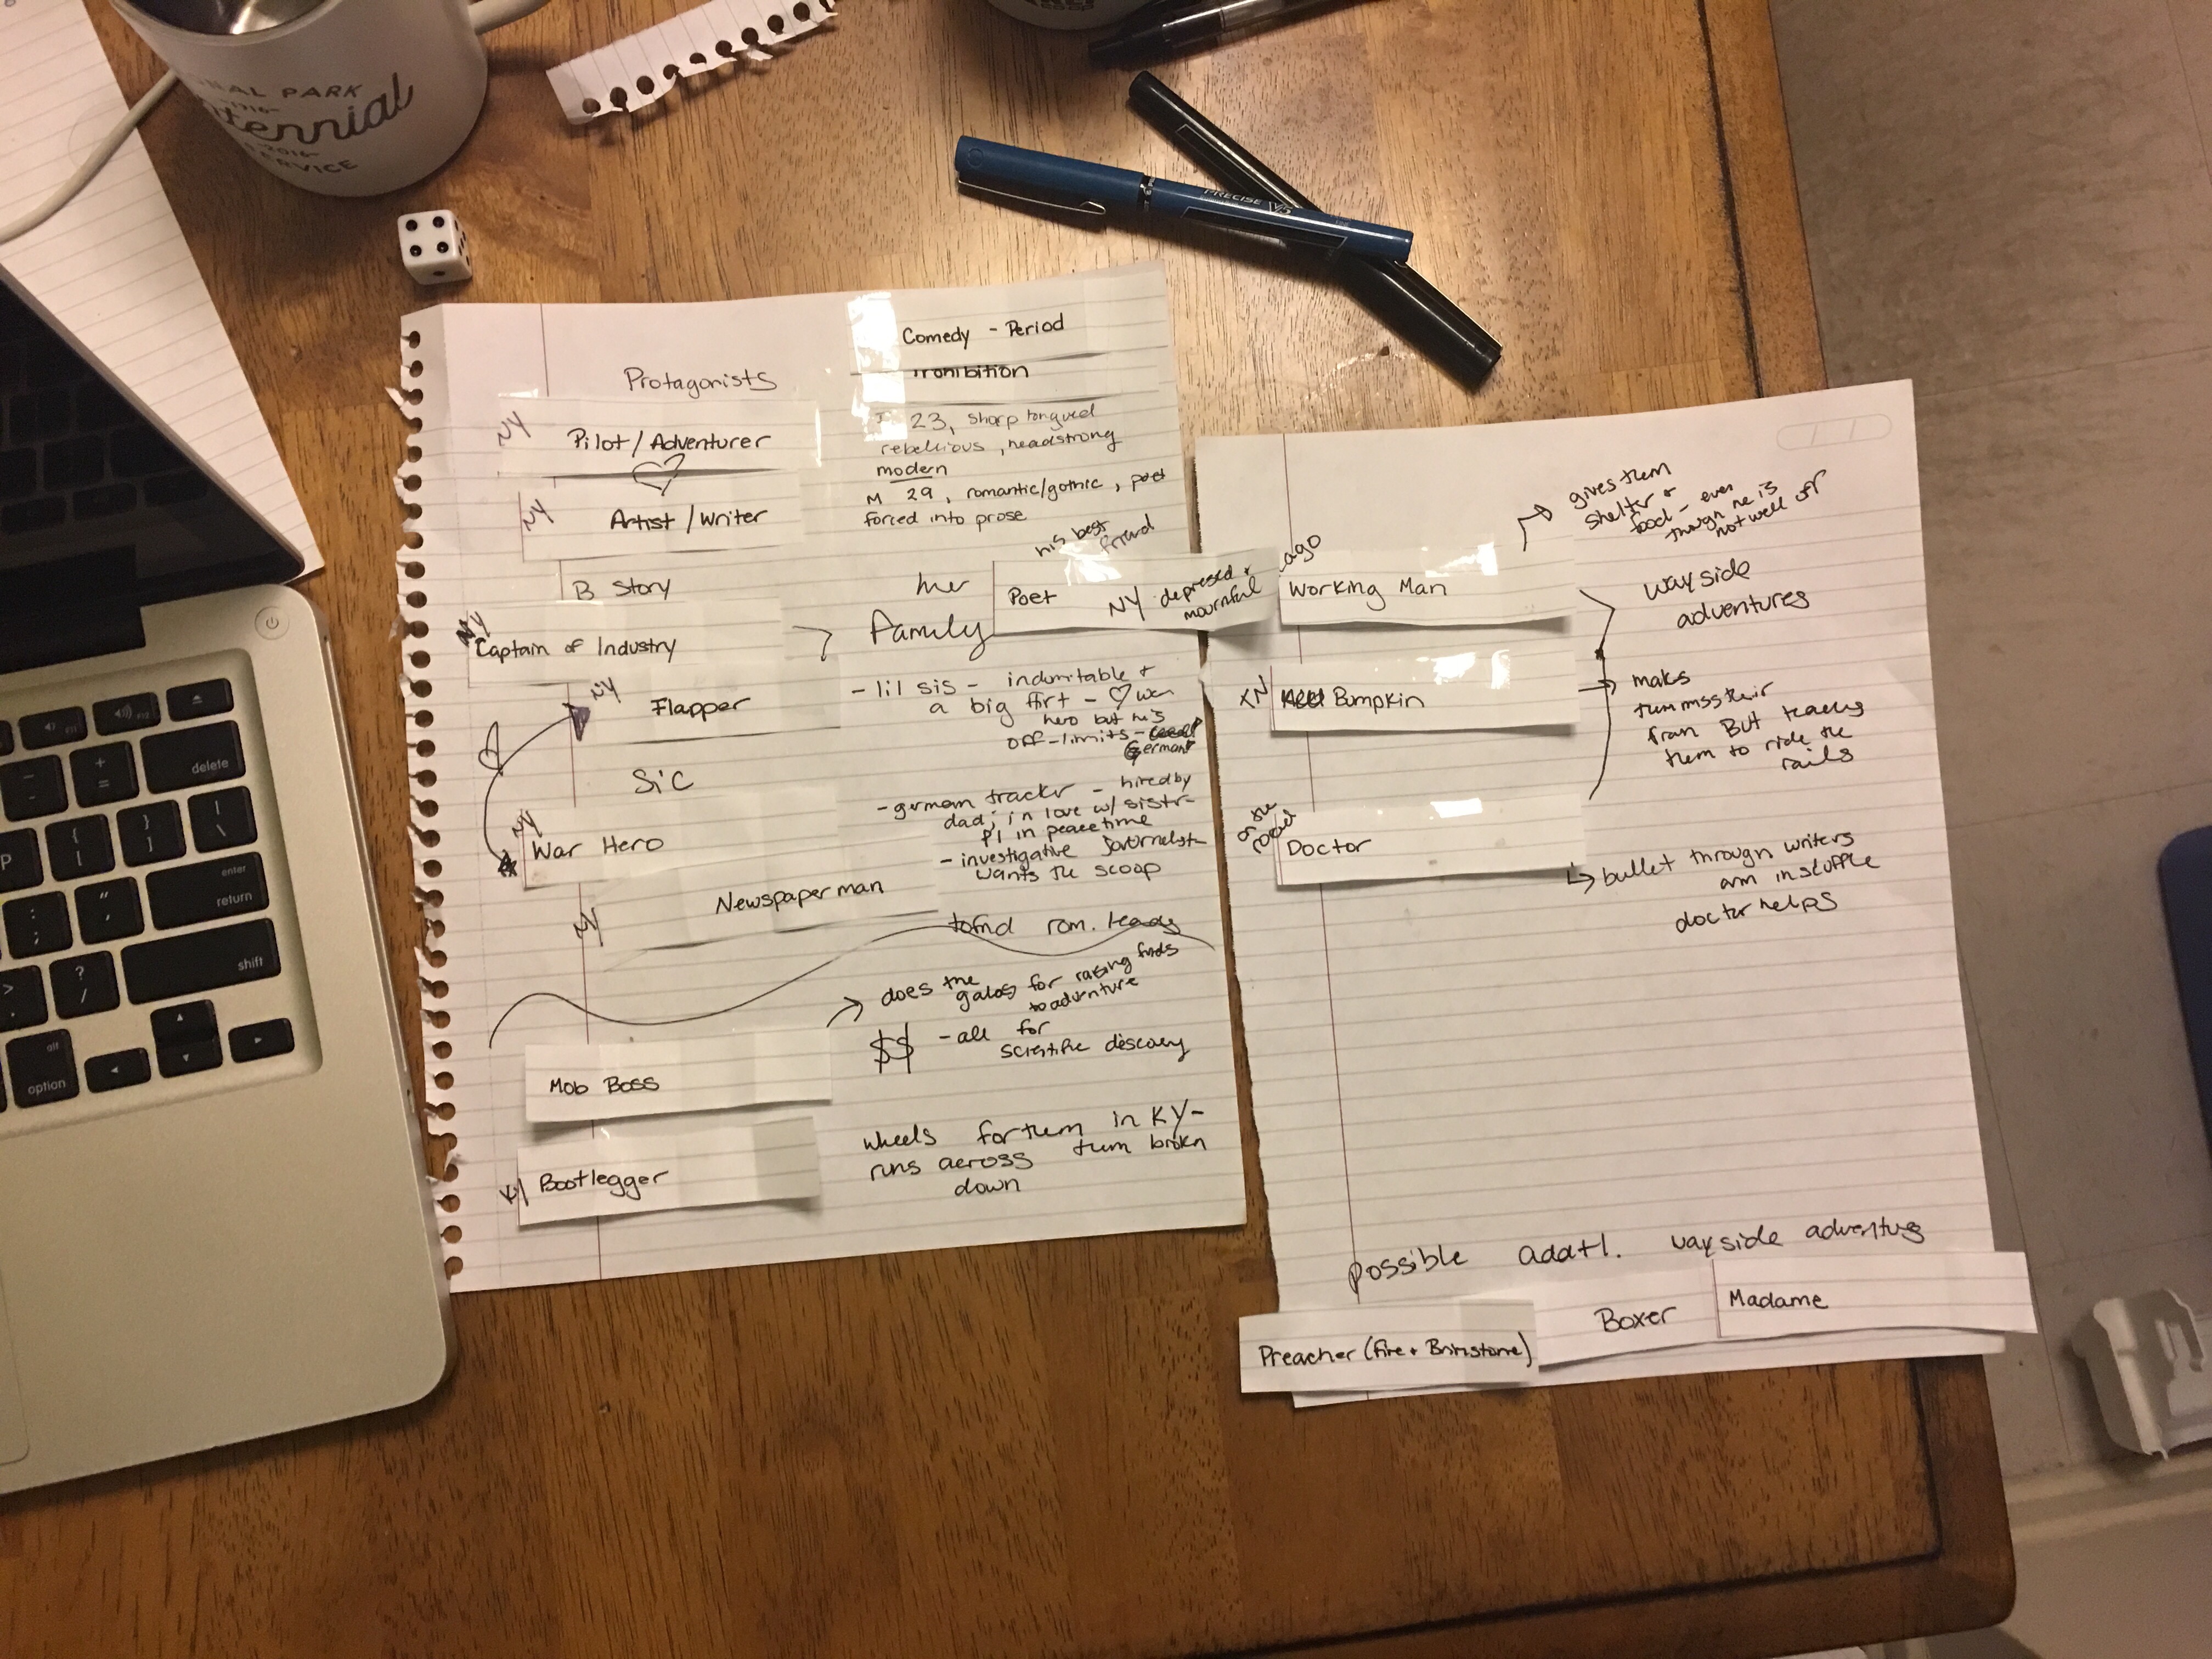 NAL PARK
1916
tennial
2016
SERVICE
PRECISE V5
Comedy - Period
Prohibition
Protagonists
NY
Pilot/Adventurer
23, sharp tongued
rebellious, headstrong
modern
NY
Artist/Writer
M 29, romantic/gothic, poet
forced into prose
B Story
his best
friend
her
family
Poet
NY depressed +
mournful
NY
Captain of Industry
NY
Flapper
- lil sis - indomitable +
a big flirt - ♡ war
hero but he's
off-limits -
German!
Sic
NY
War Hero
- german trackr - hired by
dad; in love w/ sistr -
PI in peacetime
- investigative journalist -
wants the scoop
NY
Newspaperman
to find rom. leads
Mob Boss
→ does the
galas for raising funds
to adventure
$$ - all for
scientific discovery
KY
Bootlegger
wheels for them in KY -
runs across them broken
down
ago
Working Man
gives them
shelter +
food - even
though he is
not well off
wayside
adventures
TN
Bumpkin
makes
them miss their
train But teaches
them to ride the
rails
Doctor
bullet through writers
arm in scuffle
doctor helps
possible addtl. wayside adventures
Preacher (Fire + Brimstone)
Boxer
Madame
delete
enter
return
shift
alt
option